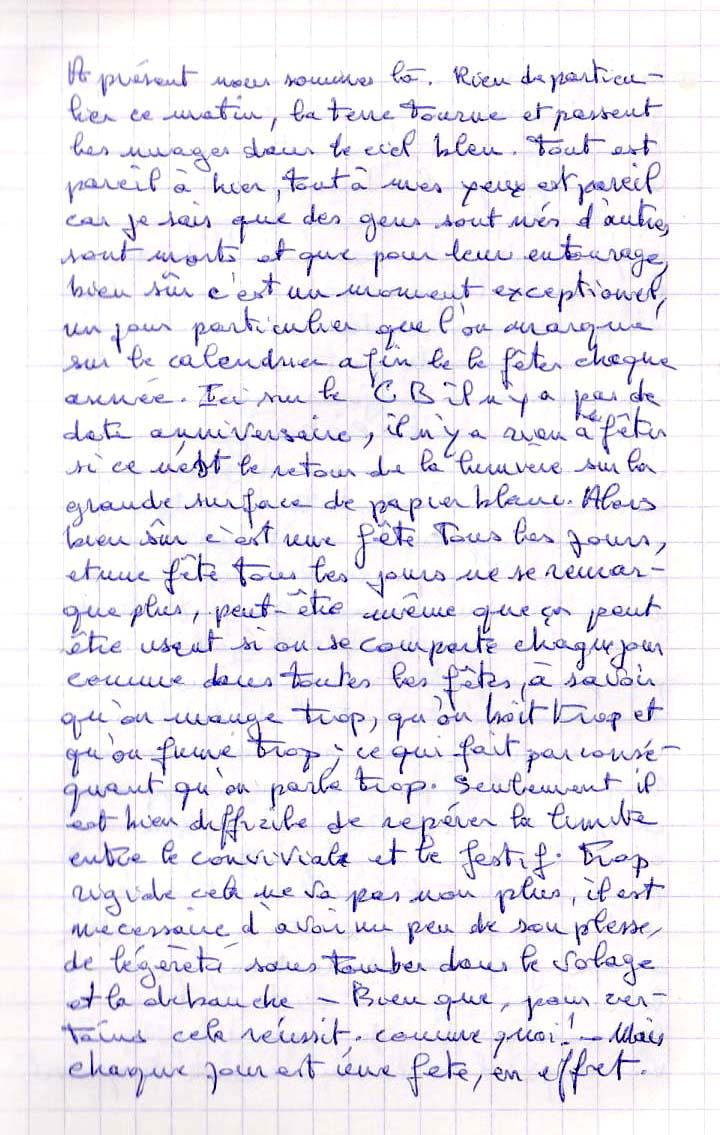 A présent nous sommes là. Rien de particu-
lier ce matin, la terre tourne et passent
les nuages dans le ciel bleu. Tout est
pareil à hier, tout à mes yeux est pareil
car je sais que des gens sont nés d'autres
sont morts et que pour leur entourage,
bien sûr c'est un moment exceptionnel,
un jour particulier que l'on marque
sur le calendrier afin le le fêter chaque
année. Ici sur le CB il n'y a pas de
date anniversaire, il n'y a rien à fêter
si ce n'est le retour de la lumière sur la
grande surface de papier blanc. Alors
bien sûr c'est une fête tous les jours,
et une fête tous les jours ne se remar-
que plus, peut-être même que ça peut
être usant si on se comporte chaque jour
comme dans toutes les fêtes, à savoir
qu'on mange trop, qu'on boit trop et
qu'on fume trop ; ce qui fait par consé-
quant qu'on parle trop. Seulement il
est bien difficile de repérer la limite
entre le conviviale et le festif. Trop
rigide cela ne va pas non plus, il est
nécessaire d'avoir un peu de souplesse,
de légèreté sans tomber dans le volage
et la débauche - Bien que, pour cer-
tains cela réussit. comme quoi ! - Mais
chaque jour est une fête, en effet.